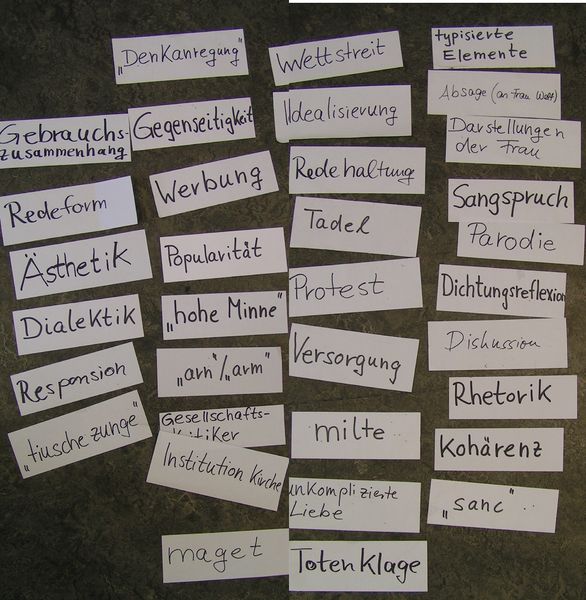 Gebrauchs-
zusammenhang
Redeform
Ästhetik
Dialektik
Responsion
„tiusche zunge“
„Denkanregung“
Gegenseitigkeit
Werbung
Popularität
„hohe Minne“
„arn“/„arm“
Gesellschafts-
kritiker
Institution Kirche
maget
Wettstreit
Idealisierung
Redehaltung
Tadel
Protest
Versorgung
milte
unkomplizierte
Liebe
Totenklage
typisierte
Elemente
Absage (an Frau Welt)
Darstellungen
der Frau
Sangspruch
Parodie
Dichtungsreflexion
Diskussion
Rhetorik
Kohärenz
„sanc“